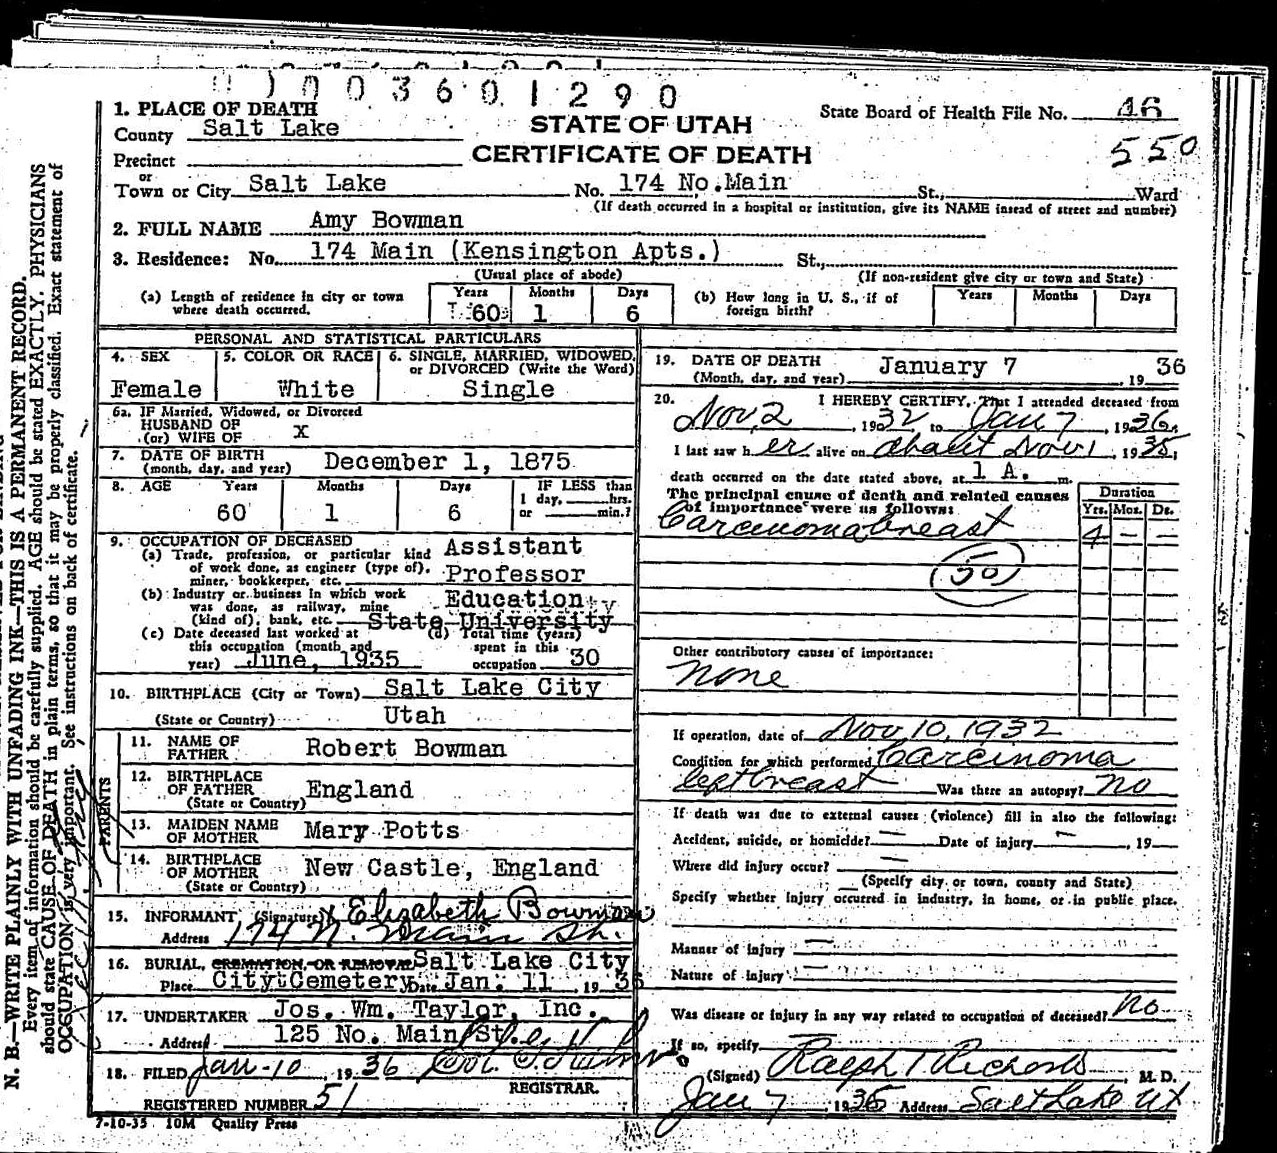 0 1 0 0 3 6 0 1 2 9 0
1. PLACE OF DEATH
County Salt Lake
STATE OF UTAH
CERTIFICATE OF DEATH
State Board of Health File No. 46
550
Precinct
or
Town or City Salt Lake No. 174 No. Main St., Ward
(If death occurred in a hospital or institution, give its NAME insead of street and number)
2. FULL NAME Amy Bowman
3. Residence: No. 174 Main (Kensington Apts.) St.,
(Usual place of abode) (If non-resident give city or town and State)
(a) Length of residence in city or town where death occurred. Years 60 Months 1 Days 6
(b) How long in U. S., if of foreign birth? Years Months Days
PERSONAL AND STATISTICAL PARTICULARS
4. SEX Female
5. COLOR OR RACE White
6. SINGLE, MARRIED, WIDOWED, or DIVORCED (Write the Word) Single
6a. IF Married, Widowed, or Divorced
HUSBAND OF
(or) WIFE OF X
7. DATE OF BIRTH
(month, day, and year) December 1, 1875
8. AGE Years 60 Months 1 Days 6 IF LESS than 1 day, hrs. or min.?
9. OCCUPATION OF DECEASED
(a) Trade, profession, or particular kind of work done, as engineer (type of), miner, bookkeeper, etc. Assistant Professor
(b) Industry or business in which work was done, as railway, mine (kind of), bank, etc. Education State University
(c) Date deceased last worked at this occupation (month and year) June, 1935
(d) Total time (years) spent in this occupation 30
10. BIRTHPLACE (City or Town) Salt Lake City
(State or Country) Utah
PARENTS
11. NAME OF FATHER Robert Bowman
12. BIRTHPLACE OF FATHER (State or Country) England
13. MAIDEN NAME OF MOTHER Mary Potts
14. BIRTHPLACE OF MOTHER (State or Country) New Castle, England
15. INFORMANT (Signature) X Elizabeth Bowman
Address 174 N. Main St.
16. BURIAL, CREMATION OR REMOVAL Salt Lake City
Place City Cemetery Date Jan. 11 1936
17. UNDERTAKER Jos. Wm. Taylor, Inc.
Address 125 No. Main St.
18. FILED Jan-10, 1936
REGISTRAR.
REGISTERED NUMBER 51
7-10-35 10M Quality Press
19. DATE OF DEATH
(Month, day, and year) January 7, 1936
20. I HEREBY CERTIFY, That I attended deceased from
Nov, 2, 1932, to Jan 7, 1936.
I last saw her alive on about Nov 1, 1935,
death occurred on the date stated above, at 1 A. m.
The principal cause of death and related causes of importance were as follows:
Duration
Yrs. Mos. Ds.
Carcinoma breast 4 — —
50
Other contributory causes of importance:
None
If operation, date of Nov 10, 1932
Condition for which performed Carcinoma
left breast Was there an autopsy? no
If death was due to external causes (violence) fill in also the following:
Accident, suicide, or homicide? — Date of injury —, 19
Where did injury occur? —
(Specify city or town, county and State)
Specify whether injury occurred in industry, in home, or in public place.
Manner of injury —
Nature of injury —
Was disease or injury in any way related to occupation of deceased? No
If so, specify
(Signed) Ralph T Richards, M. D.
Jan 7, 1936 Address Salt Lake Ut
N. B.—WRITE PLAINLY WITH UNFADING INK—THIS IS A PERMANENT RECORD.
Every item of information should be carefully supplied. AGE should be stated EXACTLY. PHYSICIANS
should state CAUSE OF DEATH in plain terms, so that it may be properly classified. Exact statement of
OCCUPATION is very important. See instructions on back of certificate.